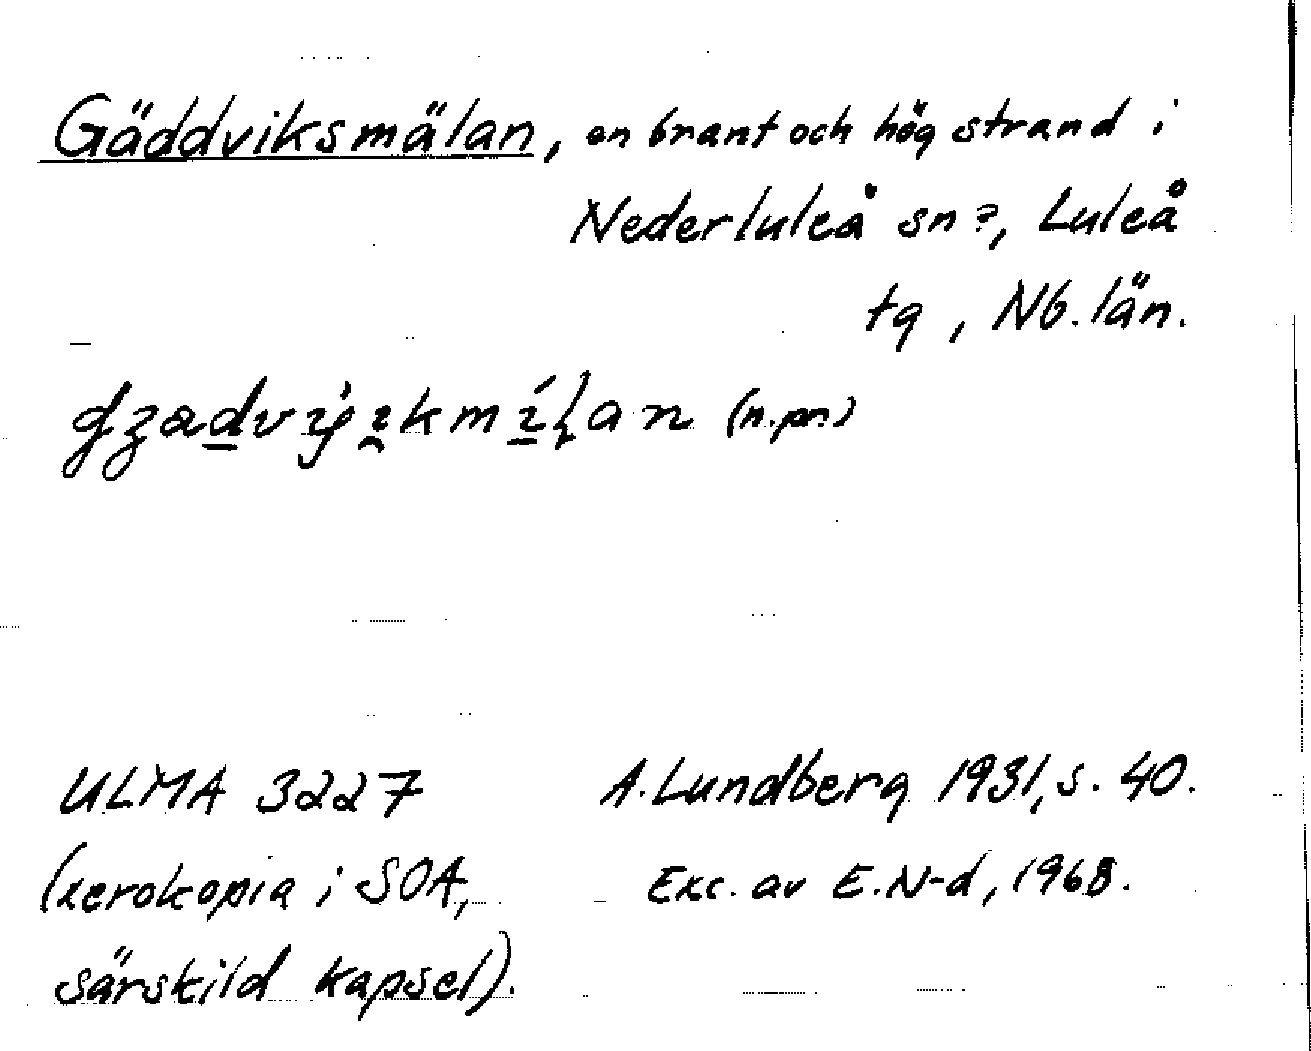 Gäddviksmälan, en brant och hög strand i
Nederluleå sn?, Luleå
tg, Nb. län.
(n.pr.)
ULMA 3227 A. Lundberg 1931, s. 40.
(xerokopia i SOA, Exc. av E.N-d, 1968.
särskild kapsel).